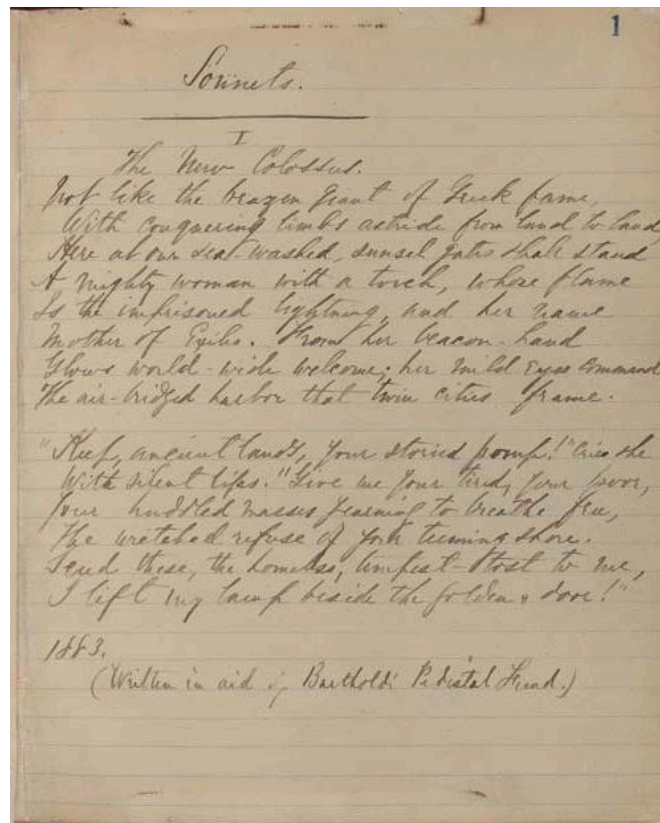 1
Sonnets.
I
The New Colossus.
Not like the brazen giant of Greek fame,
With conquering limbs astride from land to land,
Here at our sea-washed, sunset gates shall stand
A mighty woman with a torch, whose flame
Is the imprisoned lightning, and her name
Mother of Exiles. From her beacon-hand
Glows world-wide welcome; her mild eyes command
The air-bridged harbor that twin cities frame.
"Keep, ancient lands, your storied pomp!" cries she
With silent lips. "Give me your tired, your poor,
Your huddled masses yearning to breathe free,
The wretched refuse of your teeming shore.
Send these, the homeless, tempest-tost to me,
I lift my lamp beside the golden door!"
1883.
(Written in aid of Bartholdi Pedestal Fund.)